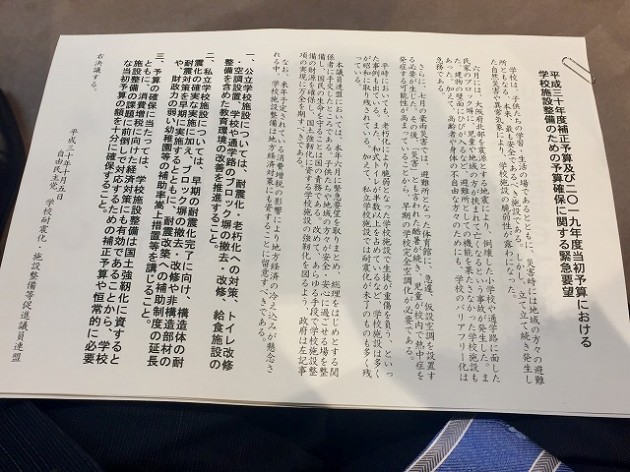 平成三十年度補正予算及び二〇一九年度当初予算における
学校施設整備のための予算確保に関する緊急要望
学校は、子供たちの学習・生活の場であるとともに、災害時には地域の方々の避難
所ともなる、本来、最も安全であるべき施設である。しかし、立て続き発生し
た自然災害等により、学校施設の脆弱性が露わになった。
六月には、大阪府北部を震源とする地震により、倒壊した学校や通学路に面した
民家のブロック塀に、児童や地域の方が挟まれて亡くなるという事故が発生した。ま
た、建物の壁面にひびが入るなど、避難所としての機能を果たさなかった学校施設も
ある。加えて、高齢者や身体の不自由な方々のためにも、学校のバリアフリー化は
急務である。
さらに、七月の豪雨災害では、避難所となった体育館に、急遽、仮設空調を設置す
る必要が生じた。その後、「災害」とも言われた酷暑が続き、児童が校内で熱中症を
発症する可能性も高まっていることから、早期の学校完全空調化が必要である。
平時においても、老朽化により脆弱となった学校施設で生徒が重傷を負う、といっ
た事例も出ている。また、和式トイレが半数以上を占めるなど、学校施設は多く
が昭和に取り残されている。また、私立学校施設では耐震化が未了のものも多く残
っている。
本議員連盟においては、本年六月に緊急要望を取りまとめ、総理をはじめとする関
係者に手交したところである。子供たちや地域の方々が安全・安心に過ごせる場を整
備し、国民の生命を守ることは国の責務である。改めて、あらゆる手段で学校施設整
備の財源を確保し、国土強靱化に資する学校施設の強靱化を図るよう、政府は左記事
項の実現に万全を期すべきである。
なお、来年予定されている消費増税の影響により地方経済の冷え込みが懸念さ
れる中、学校施設整備は地方経済対策にも資することに留意すべきである。
一、公立学校施設については、耐震化・老朽化への対策、トイレ改修
・空調設置、学校や通学路のブロック塀の撤去・改修、給食施設の
整備を含めた教育環境の改善を推進すること。
二、私立学校施設については、早期の耐震化完了に向け、構造体の耐
震化の確実な実施に加え、ブロック塀の撤去・改修や非構造部材の
耐震対策を早期に実施するとともに、耐震改築への補助制度の延長
や、財政力の弱い幼稚園等の補助率嵩上措置等を講じること。
三、予算の確保に当たっては、学校施設整備は国土強靱化に資すると
ともに、消費増税に向けた経済対策にも有効であることから、学校
施設整備の課題に前倒しで対応するための補正予算や恒常的に必要
な当初予算の額を十分に確保すること。
右決議する。
平成三十年十月五日
自民党　学校耐震化・施設整備等促進議員連盟